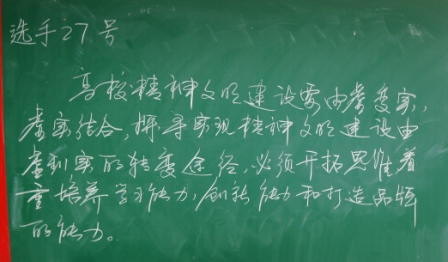 选手27号
高校精神文明建设需由虚变实,
虚实结合,探寻实现精神文明建设由
虚到实的转变途径,必须开拓思维着
重培养学习能力,创新能力和打造品牌
的能力。